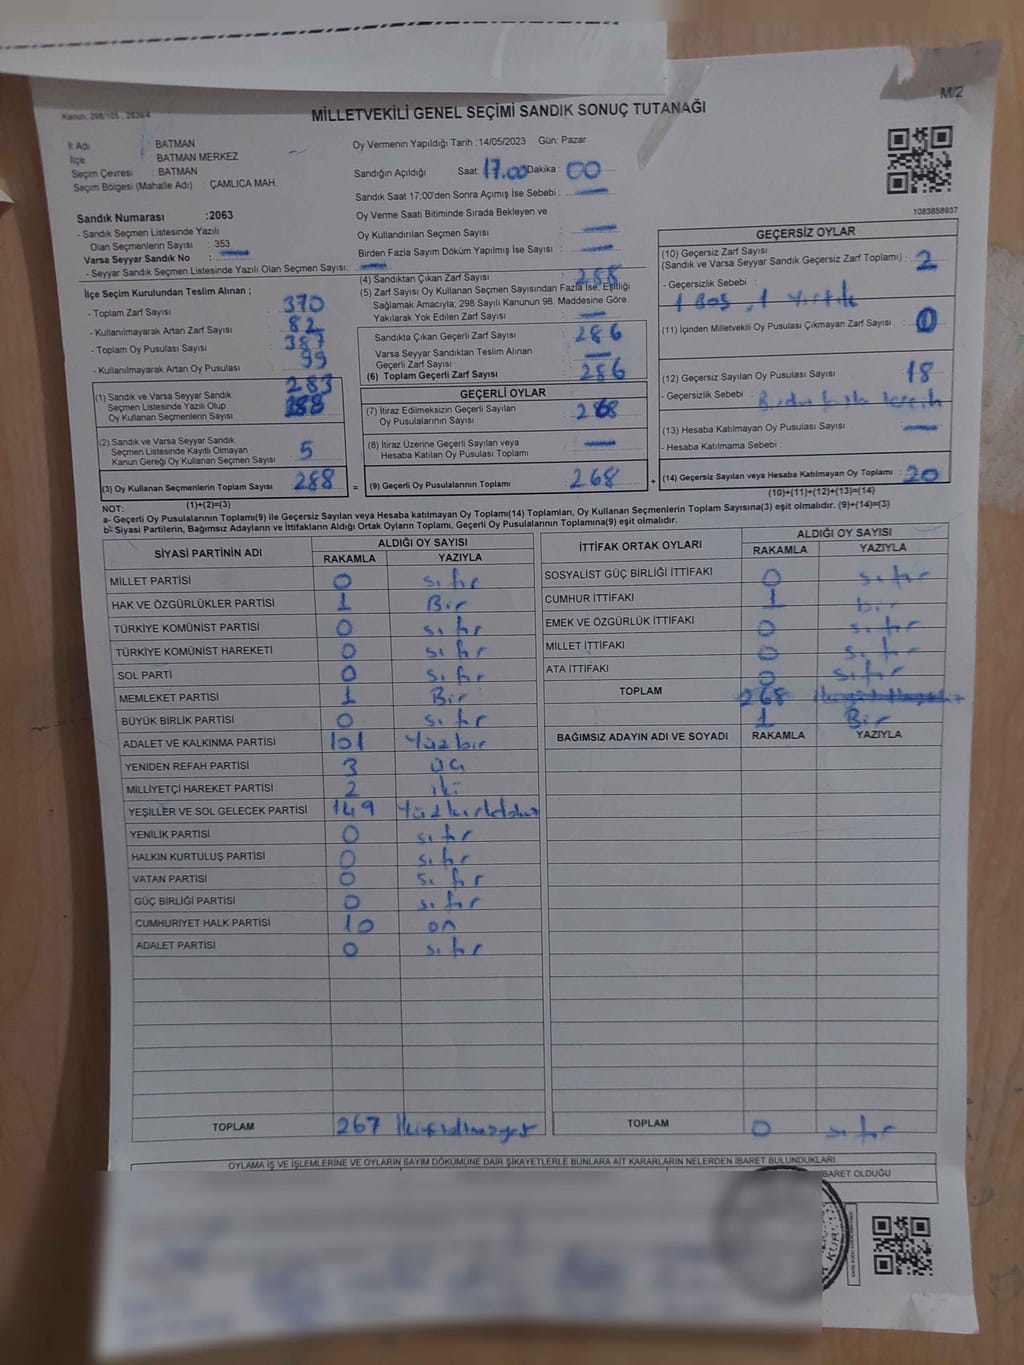 M/2
Kanun: 298/105 , 2839/4
MİLLETVEKİLİ GENEL SEÇİMİ SANDIK SONUÇ TUTANAĞI
İl Adı : BATMAN
İlçe : BATMAN MERKEZ
Seçim Çevresi : BATMAN
Seçim Bölgesi (Mahalle Adı) : ÇAMLICA MAH.
Sandık Numarası :2063
- Sandık Seçmen Listesinde Yazılı
Olan Seçmenlerin Sayısı : 353
Varsa Seyyar Sandık No :
- Seyyar Sandık Seçmen Listesinde Yazılı Olan Seçmen Sayısı:
Oy Vermenin Yapıldığı Tarih :14/05/2023 Gün: Pazar
Sandığın Açıldığı Saat: 17.00 Dakika : 00
Sandık Saat 17:00'den Sonra Açımış İse Sebebi :
Oy Verme Saati Bitiminde Sırada Bekleyen ve
Oy Kullandırılan Seçmen Sayısı :
Birden Fazla Sayım Döküm Yapılmış İse Sayısı :
1083858937
İlçe Seçim Kurulundan Teslim Alınan ;
- Toplam Zarf Sayısı : 370
- Kullanılmayarak Artan Zarf Sayısı : 82
- Toplam Oy Pusulası Sayısı : 387
- Kullanılmayarak Artan Oy Pusulası : 99
283
(1) Sandık ve Varsa Seyyar Sandık
Seçmen Listesinde Yazılı Olup
Oy Kullanan Seçmenlerin Sayısı
(2) Sandık ve Varsa Seyyar Sandık
Seçmen Listesinde Kayıtlı Olmayan
Kanun Gereği Oy Kullanan Seçmen Sayısı : 5
(3) Oy Kullanan Seçmenlerin Toplam Sayısı : 288
(1)+(2)=(3)
(4) Sandıktan Çıkan Zarf Sayısı : 288
(5) Zarf Sayısı Oy Kullanan Seçmen Sayısından Fazla İse, Eşitliği
Sağlamak Amacıyla; 298 Sayılı Kanunun 98. Maddesine Göre
Yakılarak Yok Edilen Zarf Sayısı :
Sandıkta Çıkan Geçerli Zarf Sayısı : 286
Varsa Seyyar Sandıktan Teslim Alınan
Geçerli Zarf Sayısı :
(6) Toplam Geçerli Zarf Sayısı : 286
GEÇERLİ OYLAR
(7) İtiraz Edilmeksizin Geçerli Sayılan
Oy Pusulalarının Sayısı : 268
(8) İtiraz Üzerine Geçerli Sayılan veya
Hesaba Katılan Oy Pusulası Toplamı :
= (9) Geçerli Oy Pusulalarının Toplamı : 268 +
GEÇERSİZ OYLAR
(10) Geçersiz Zarf Sayısı
(Sandık ve Varsa Seyyar Sandık Geçersiz Zarf Toplamı) : 2
- Geçersizlik Sebebi :
1 Boş, 1 Yırtık
(11) İçinden Milletvekili Oy Pusulası Çıkmayan Zarf Sayısı : 0
(12) Geçersiz Sayılan Oy Pusulası Sayısı : 18
- Geçersizlik Sebebi : Birden fazla tercih
(13) Hesaba Katılmayan Oy Pusulası Sayısı :
- Hesaba Katılmama Sebebi :
(14) Geçersiz Sayılan veya Hesaba Katılmayan Oy Toplamı : 20
(10)+(11)+(12)+(13)=(14)
NOT:
a- Geçerli Oy Pusulalarının Toplamı(9) ile Geçersiz Sayılan veya Hesaba katılmayan Oy Toplamı(14) Toplamları, Oy Kullanan Seçmenlerin Toplam Sayısına(3) eşit olmalıdır. (9)+(14)=(3)
b- Siyasi Partilerin, Bağımsız Adayların ve İttifakların Aldığı Ortak Oyların Toplamı, Geçerli Oy Pusulalarının Toplamına(9) eşit olmalıdır.
SİYASİ PARTİNİN ADI ALDIĞI OY SAYISI
RAKAMLA YAZIYLA
MİLLET PARTİSİ 0 sıfır
HAK VE ÖZGÜRLÜKLER PARTİSİ 1 Bir
TÜRKİYE KOMÜNİST PARTİSİ 0 sıfır
TÜRKİYE KOMÜNİST HAREKETİ 0 sıfır
SOL PARTİ 0 sıfır
MEMLEKET PARTİSİ 1 Bir
BÜYÜK BİRLİK PARTİSİ 0 sıfır
ADALET VE KALKINMA PARTİSİ 101 Yüzbir
YENİDEN REFAH PARTİSİ 3 üç
MİLLİYETÇİ HAREKET PARTİSİ 2 iki
YEŞİLLER VE SOL GELECEK PARTİSİ 149 Yüzkırkdokuz
YENİLİK PARTİSİ 0 sıfır
HALKIN KURTULUŞ PARTİSİ 0 sıfır
VATAN PARTİSİ 0 sıfır
GÜÇ BİRLİĞİ PARTİSİ 0 sıfır
CUMHURİYET HALK PARTİSİ 10 on
ADALET PARTİSİ 0 sıfır
TOPLAM 267 İkiyüzaltmışyedi
İTTİFAK ORTAK OYLARI ALDIĞI OY SAYISI
RAKAMLA YAZIYLA
SOSYALİST GÜÇ BİRLİĞİ İTTİFAKI 0 sıfır
CUMHUR İTTİFAKI 1 bir
EMEK VE ÖZGÜRLÜK İTTİFAKI 0 sıfır
MİLLET İTTİFAKI 0 sıfır
ATA İTTİFAKI 0 sıfır
TOPLAM 268
1 Bir
BAĞIMSIZ ADAYIN ADI VE SOYADI RAKAMLA YAZIYLA
TOPLAM 0 sıfır
OYLAMA İŞ VE İŞLEMLERİNE VE OYLARIN SAYIM DÖKÜMÜNE DAİR ŞİKAYETLERLE BUNLARA AİT KARARLARIN NELERDEN İBARET BULUNDUKLARI
BARET OLDUĞU